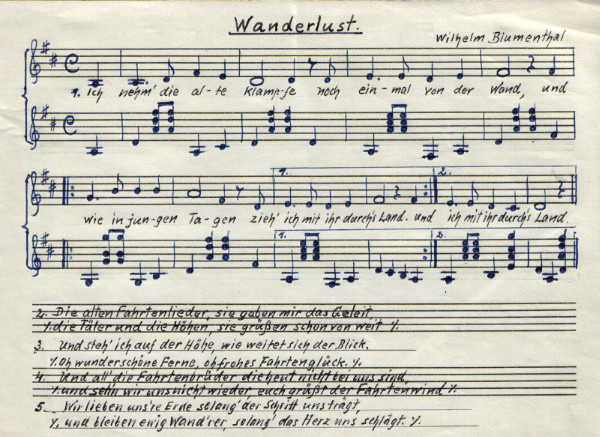 Wanderlust.
Wilhelm Blumenthal
1. Ich nehm' die al-te Klampfe noch ein-mal von der Wand, und
1. 2.
wie in jun-gen Ta-gen zieh' ich mit ihr durch's Land. und ich mit ihr durch's Land.
1. 2.
2. Die alten Fahrtenlieder, sie gaben mir das Geleit,
⁒ die Täler und die Höhen, sie grüßen schon von weit ⁒
3. Und steh' ich auf der Höhe, wie weitet sich der Blick.
⁒ Oh wunderschöne Ferne, oh frohes Fahrtenglück. ⁒
4. Und all' die Fahrtenbrüder die heut nicht bei uns sind,
⁒ und sehn wir uns nicht wieder euch grüßt der Fahrtenwind ⁒
5. Wir lieben uns're Erde solang' der Schritt uns trägt,
⁒ und bleiben ewig Wand'rer solang' das Herz uns schlägt. ⁒